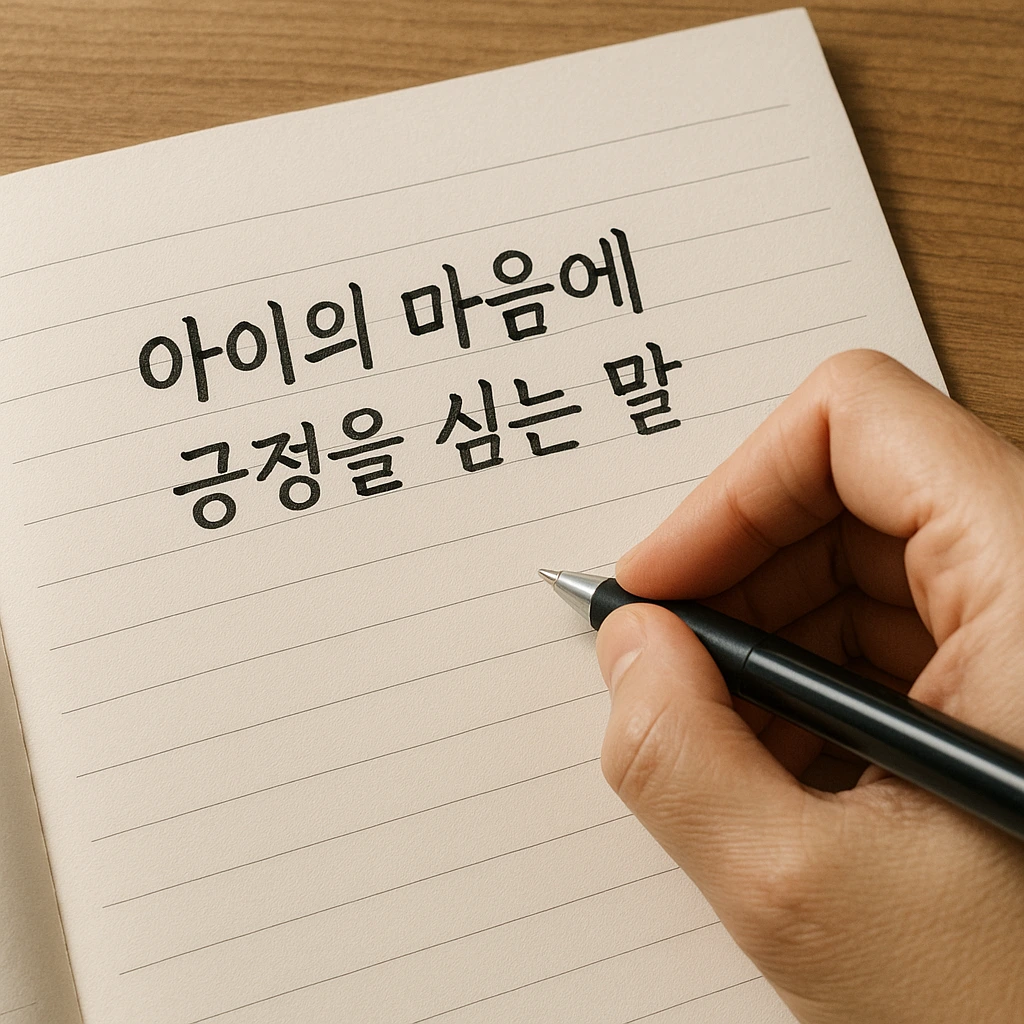 아이의 마음에
긍정을 심는 말